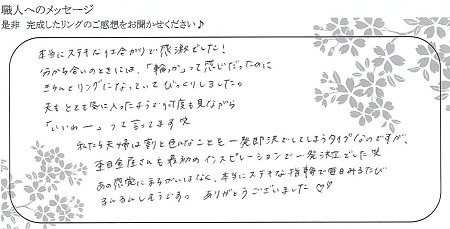 職人へのメッセージ
是非 完成したリングのご感想をお聞かせください♪
本当にステキな仕上がりで感激でした!
分かち合いのときには、「輪っか」って感じだったのに
きちんとリングになっていてびっくりしました。
夫もとても気に入ったようで何度も見ながら
「いいねー」って言ってます笑
私たち夫婦は割と色んなことを一発即決でしてしまうタイプなのですが、
杢目金屋さんも最初のインスピレーションで一発決定でした笑
あの感覚にまちがいはなく、本当にステキな指輪で毎日みるたび
るんるんしそうです。ありがとうございました♡♡